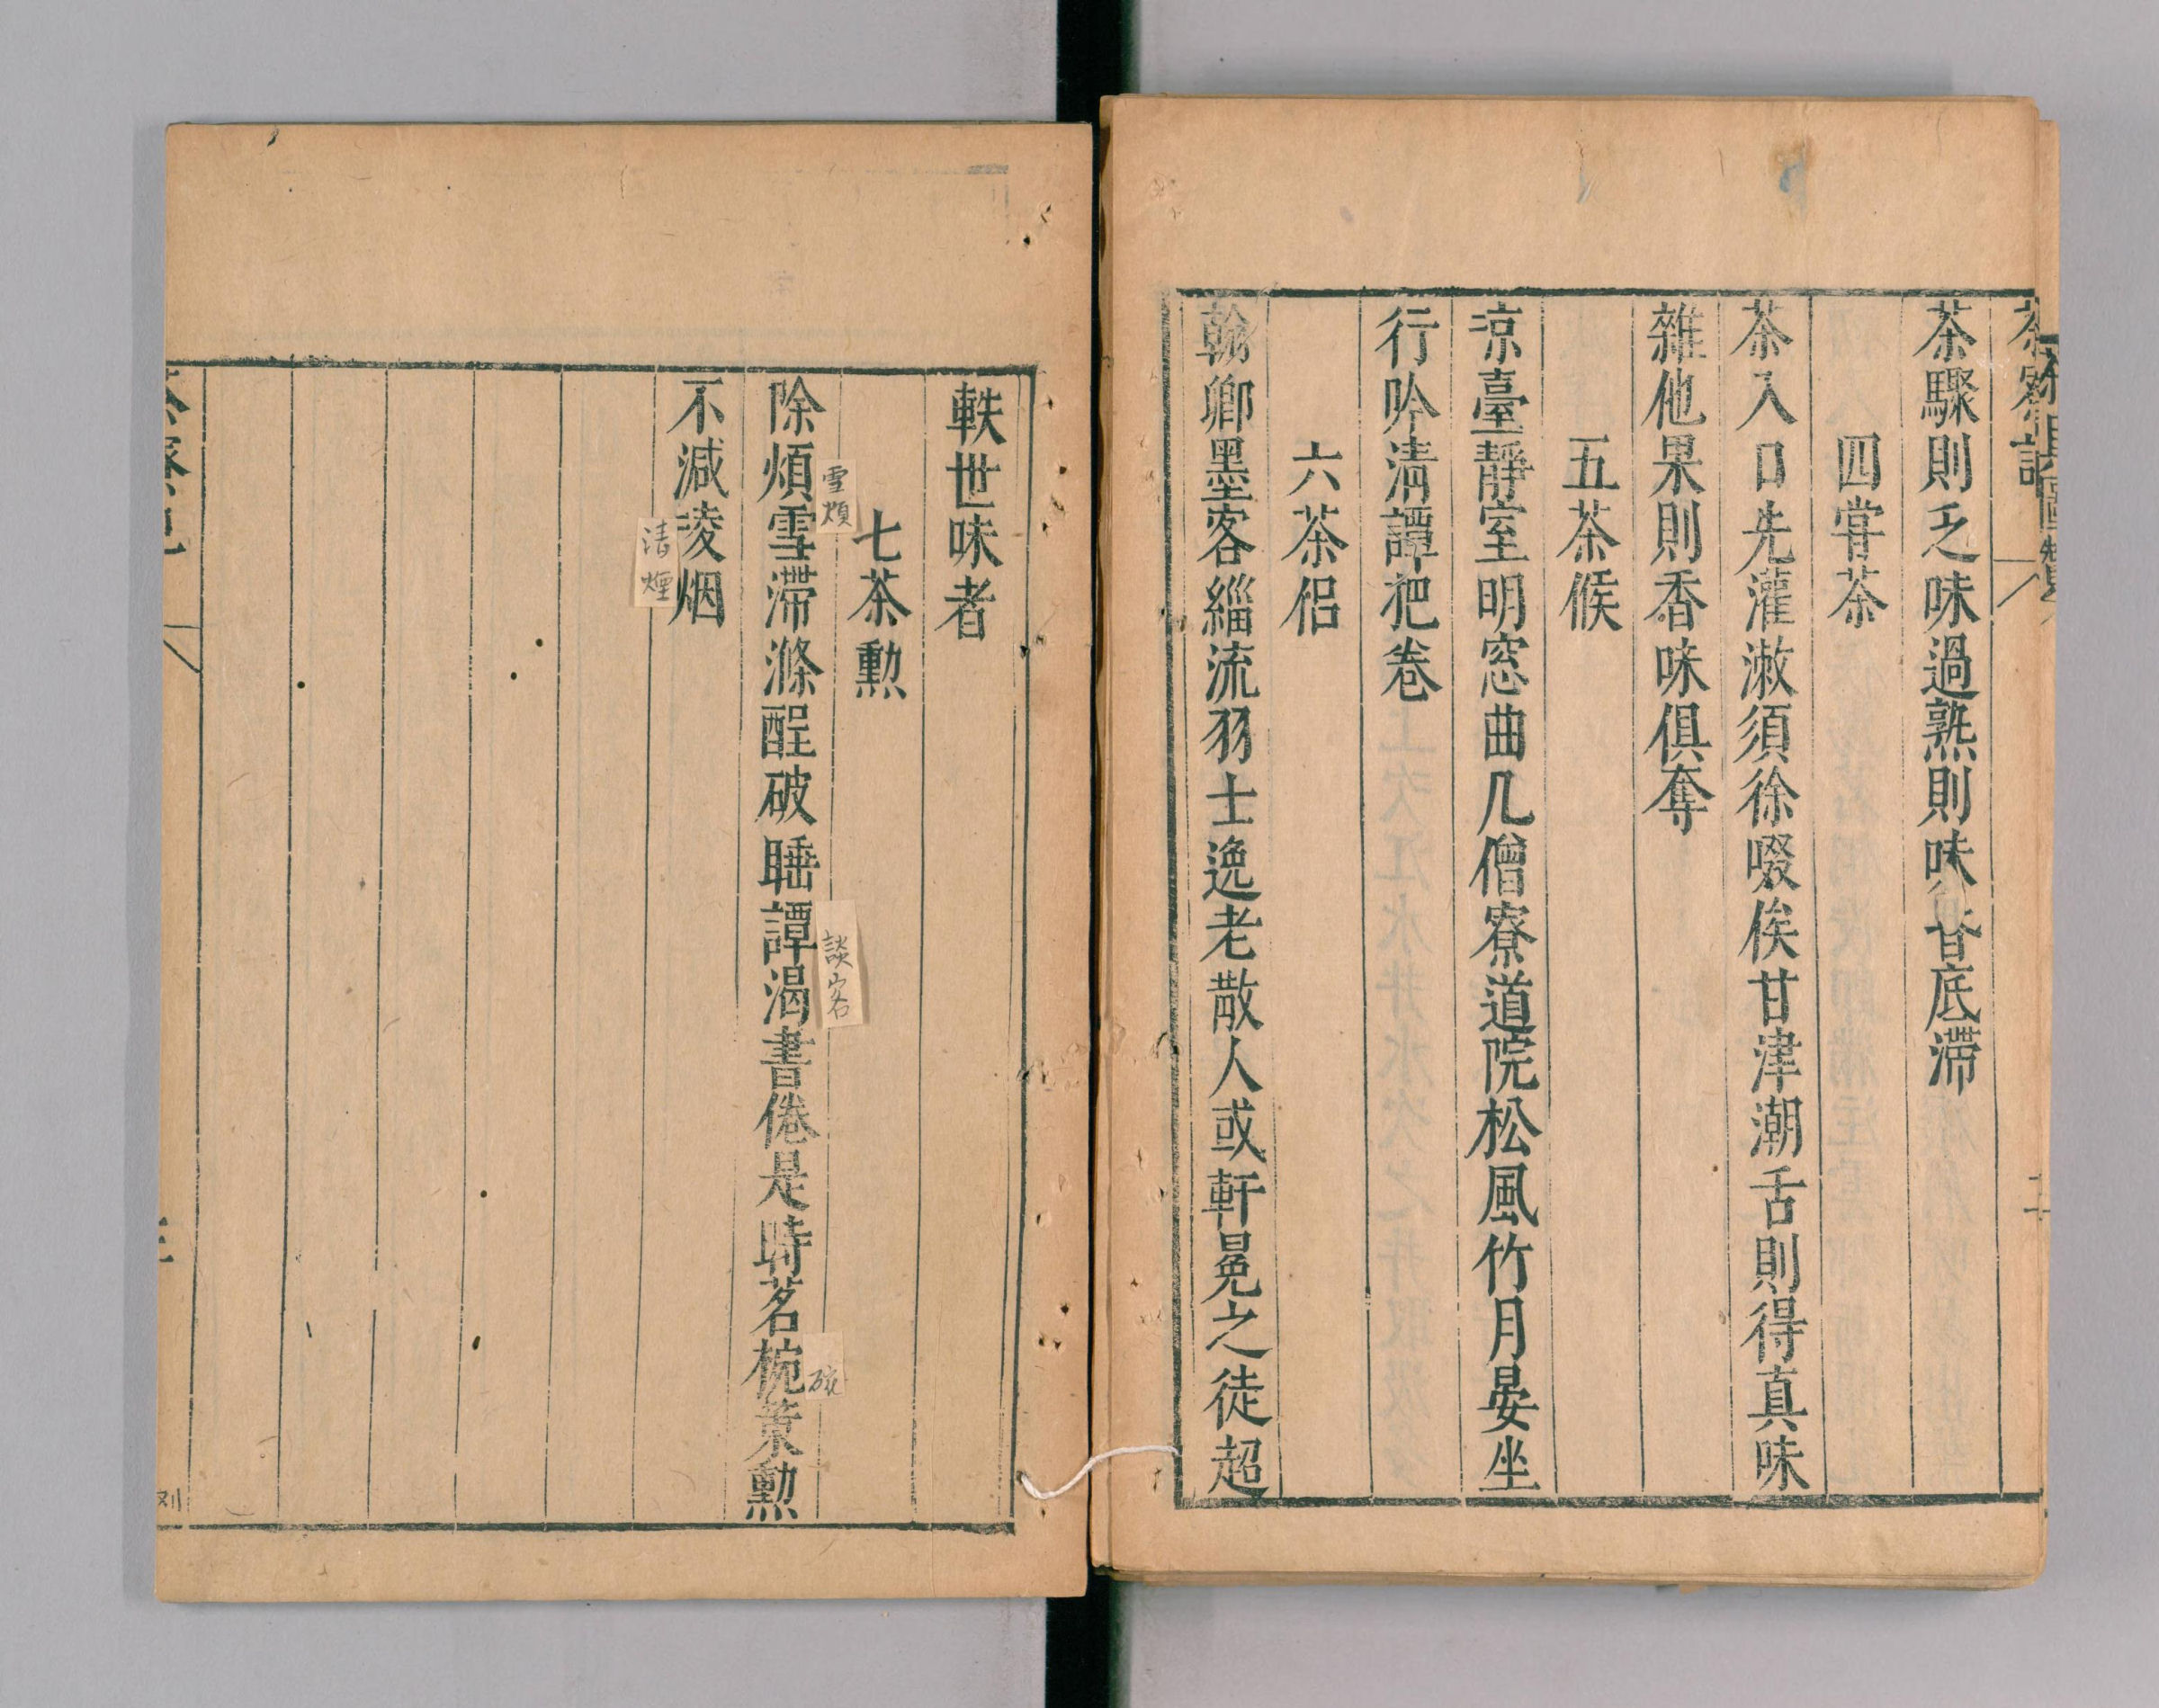 茶寮記
二
茶驟則乏味過熟則味昏底滯
四嘗茶
茶入口先灌漱須徐啜俟甘津潮舌則得真味
雜他果則香味俱奪
五茶候
涼臺靜室明窓曲几僧寮道院松風竹月晏坐
行吟淸譚把卷
六茶侶
翰卿墨客緇流羽士逸老散人或軒冕之徒超
軼世味者
七茶勲
雪煩
除煩雪滯滌酲破睡譚渴書倦是時茗椀䇿勲
談客
碗
不減凌烟
煙
茶寮記
三